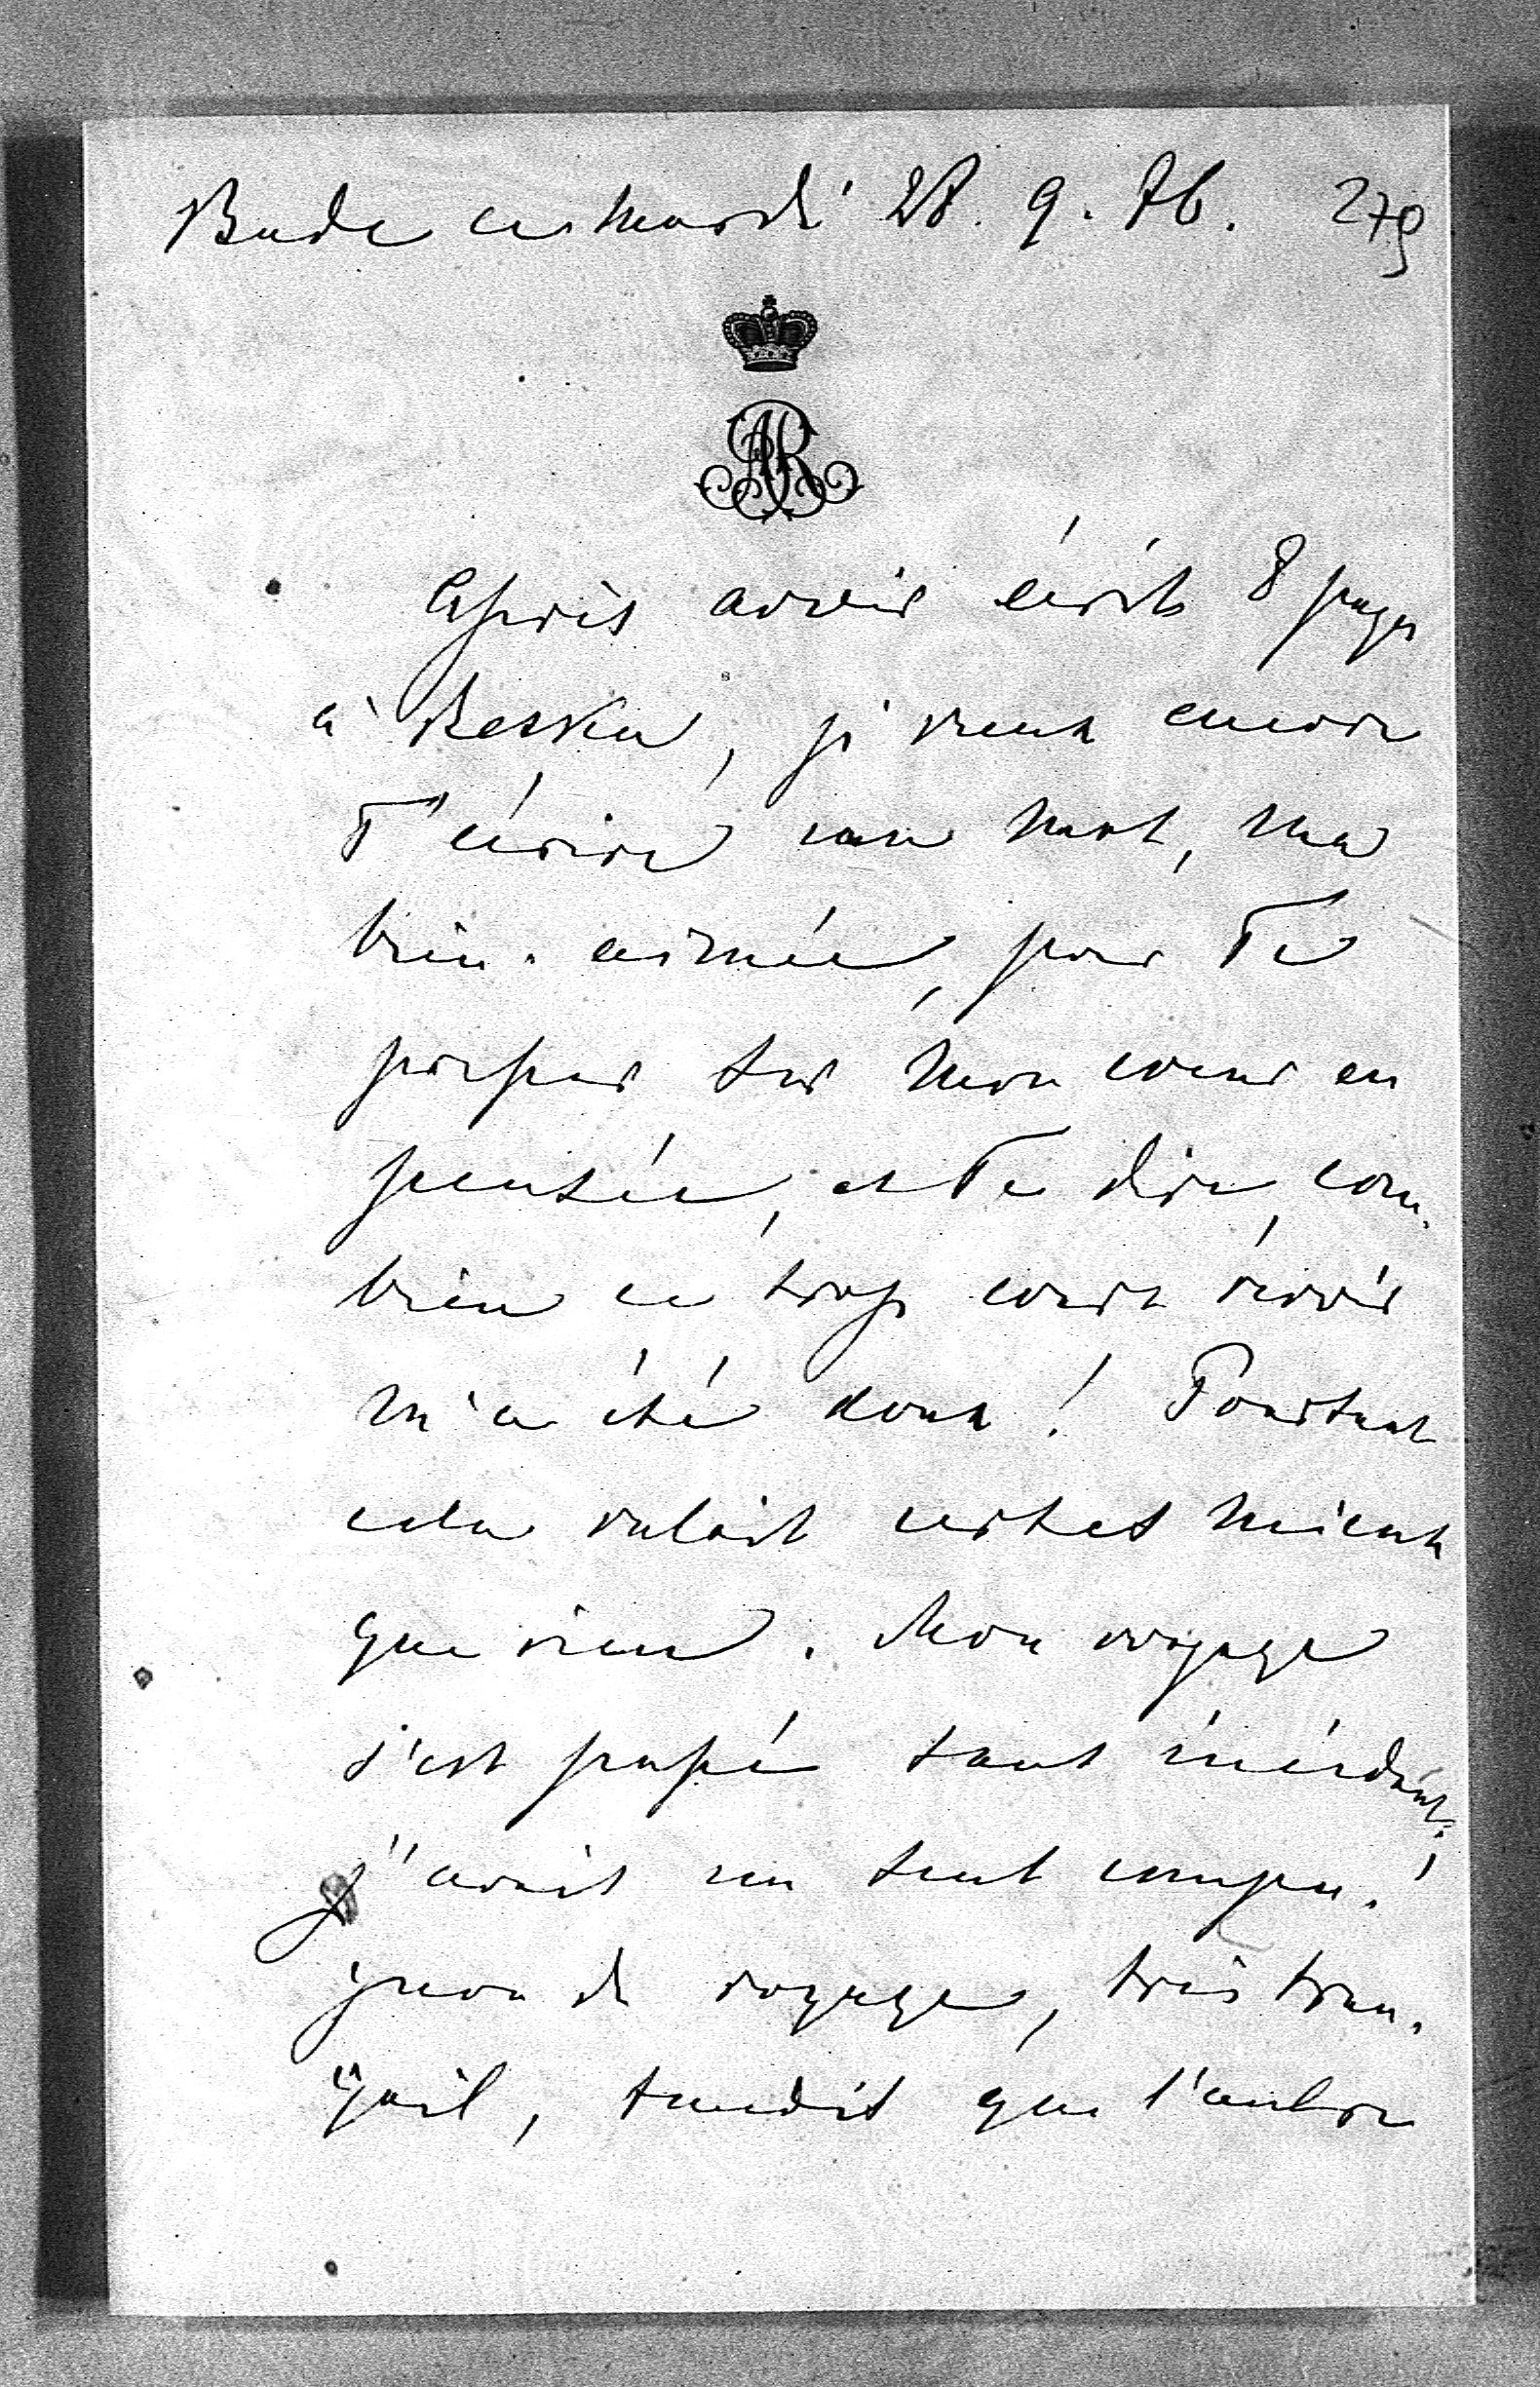 Bade ce mardi 28. 9. 76. 279
AR
Après avoir écrit 8 pages
à Beska, je veux encore
T'écrire un mot, ma
bien-aimée, pour Te
presser sur mon coeur en
pensée, et Te dire, com-
bien ce trop court revoir
m'a été doux! Pourtant
cela valait certes mieux
que rien. Mon voyage
s'est passé sans incident;
j'avais un seul compa-
gnon de voyage, très tran-
quil, tandis que l'autre